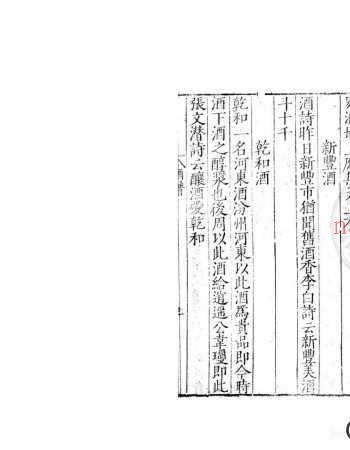 新豐酒
酒詩昨日新豐市猶聞舊酒香李白詩云新豐美酒
斗十千
乾和酒
乾和一名河東酒汾州河東以此酒爲貴品即今時
酒下酒之醇漿也後周以此酒給逍遙公韋瓊即此
張文潛詩云釀酒愛乾和